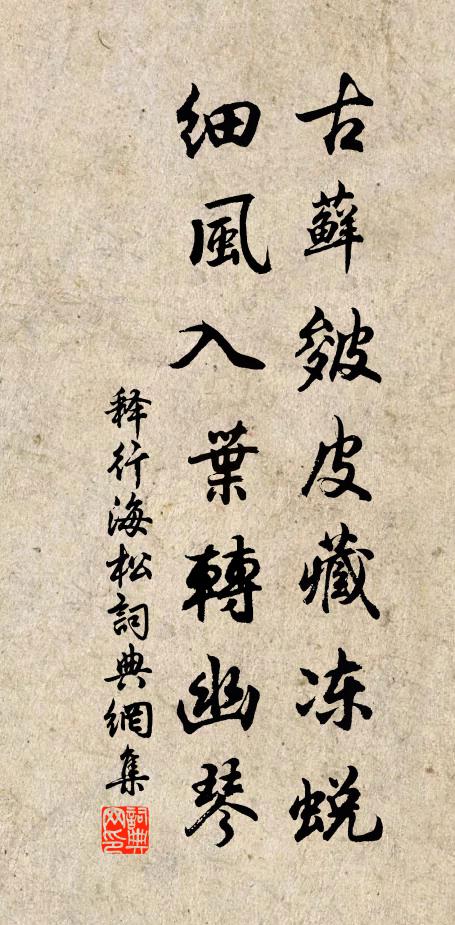 古蘚皴皮藏冻蜕
細風入葉轉幽琴
释行海松詞典網集
詞典网印